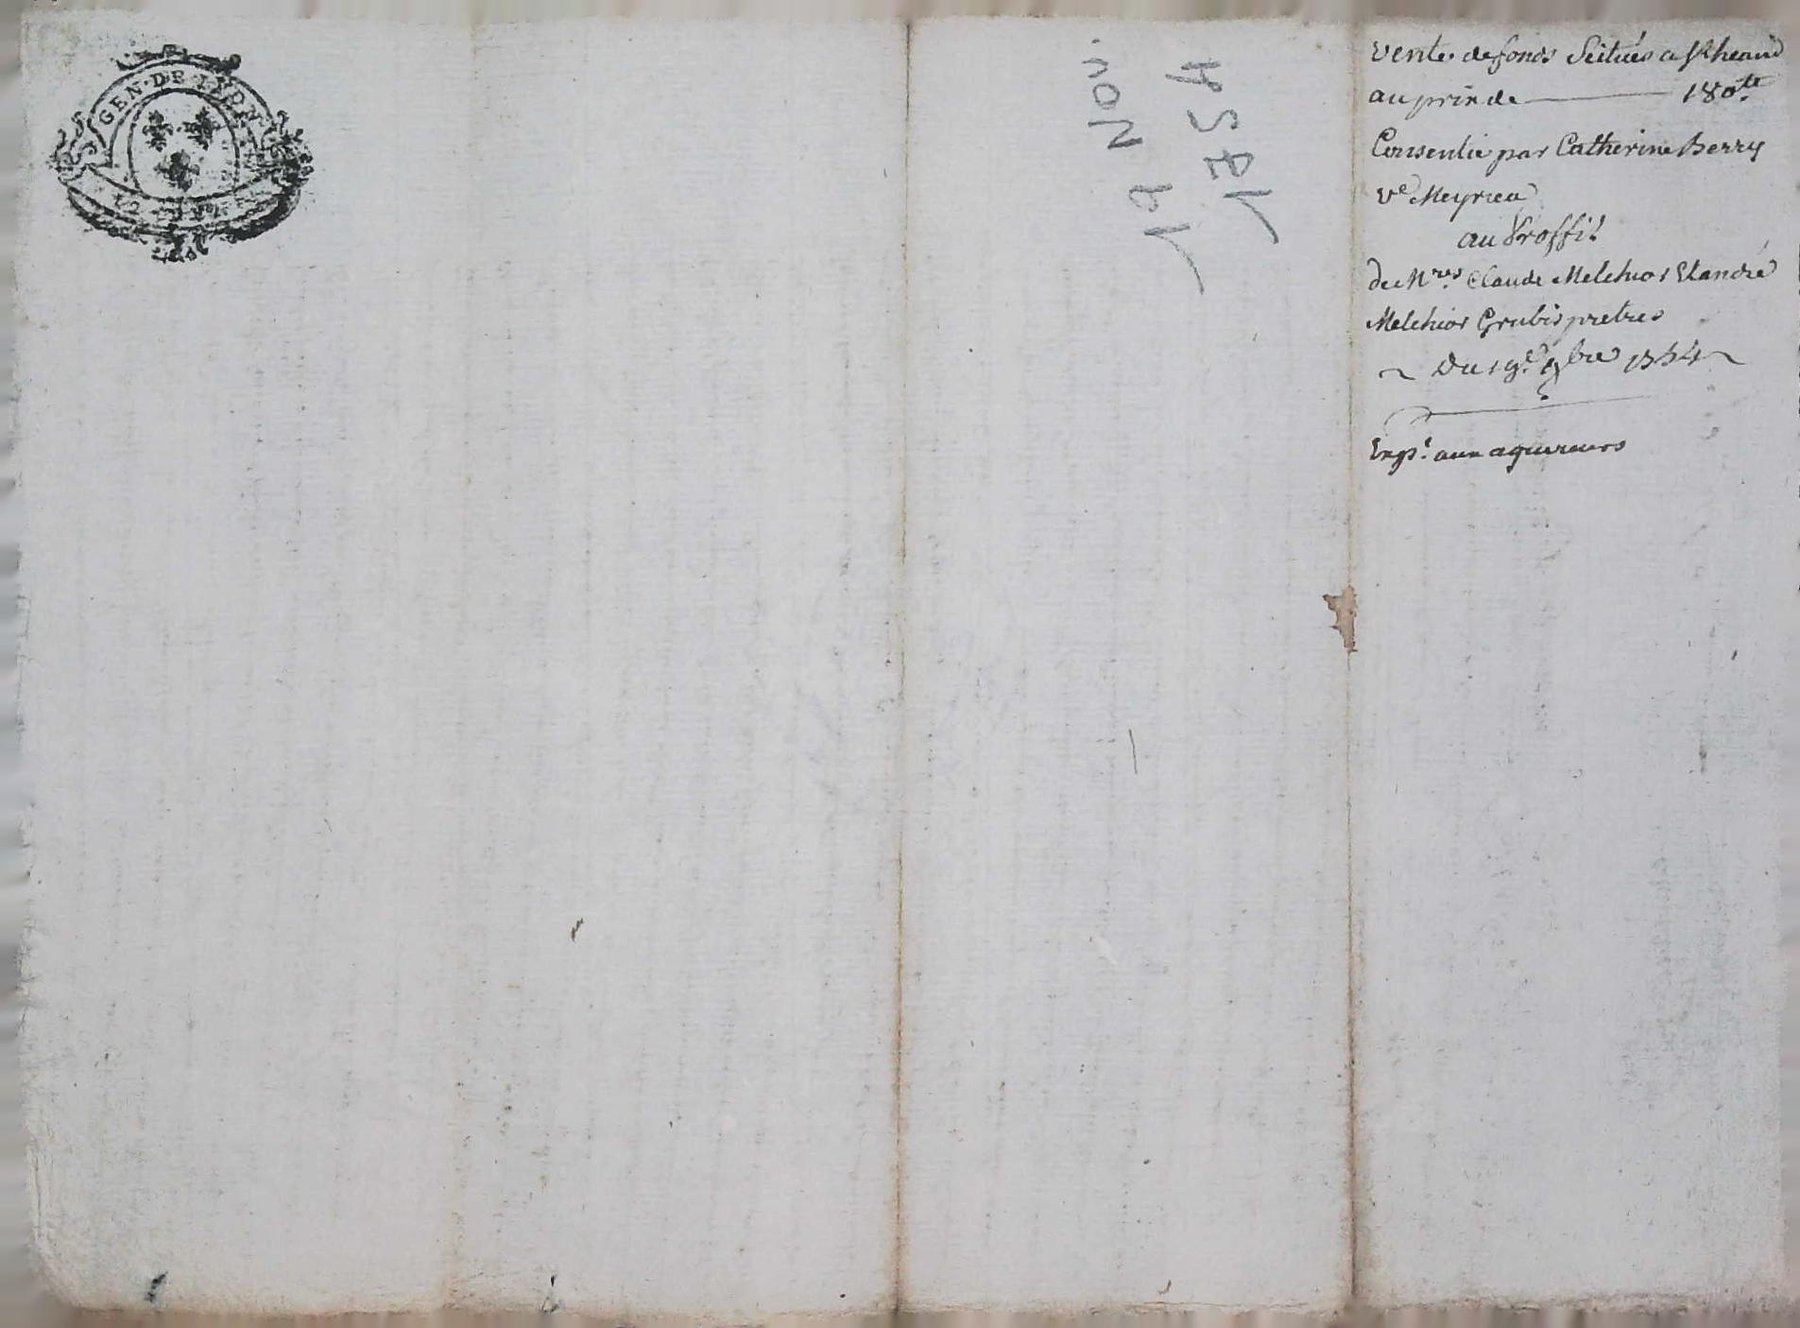 GEN·DE LYON
19 Nov.
1754
vente de fonds Scitués a Rheaud
au prix de 180.tt
Consentie par Catherine Berry
Ve Meyrieu
au Proffit
de Mres Claude Melchior Et andré
Melchior Grubis pretres
~ Du 19.e 9bre 1754 ~
Exp.t aux aquereurs